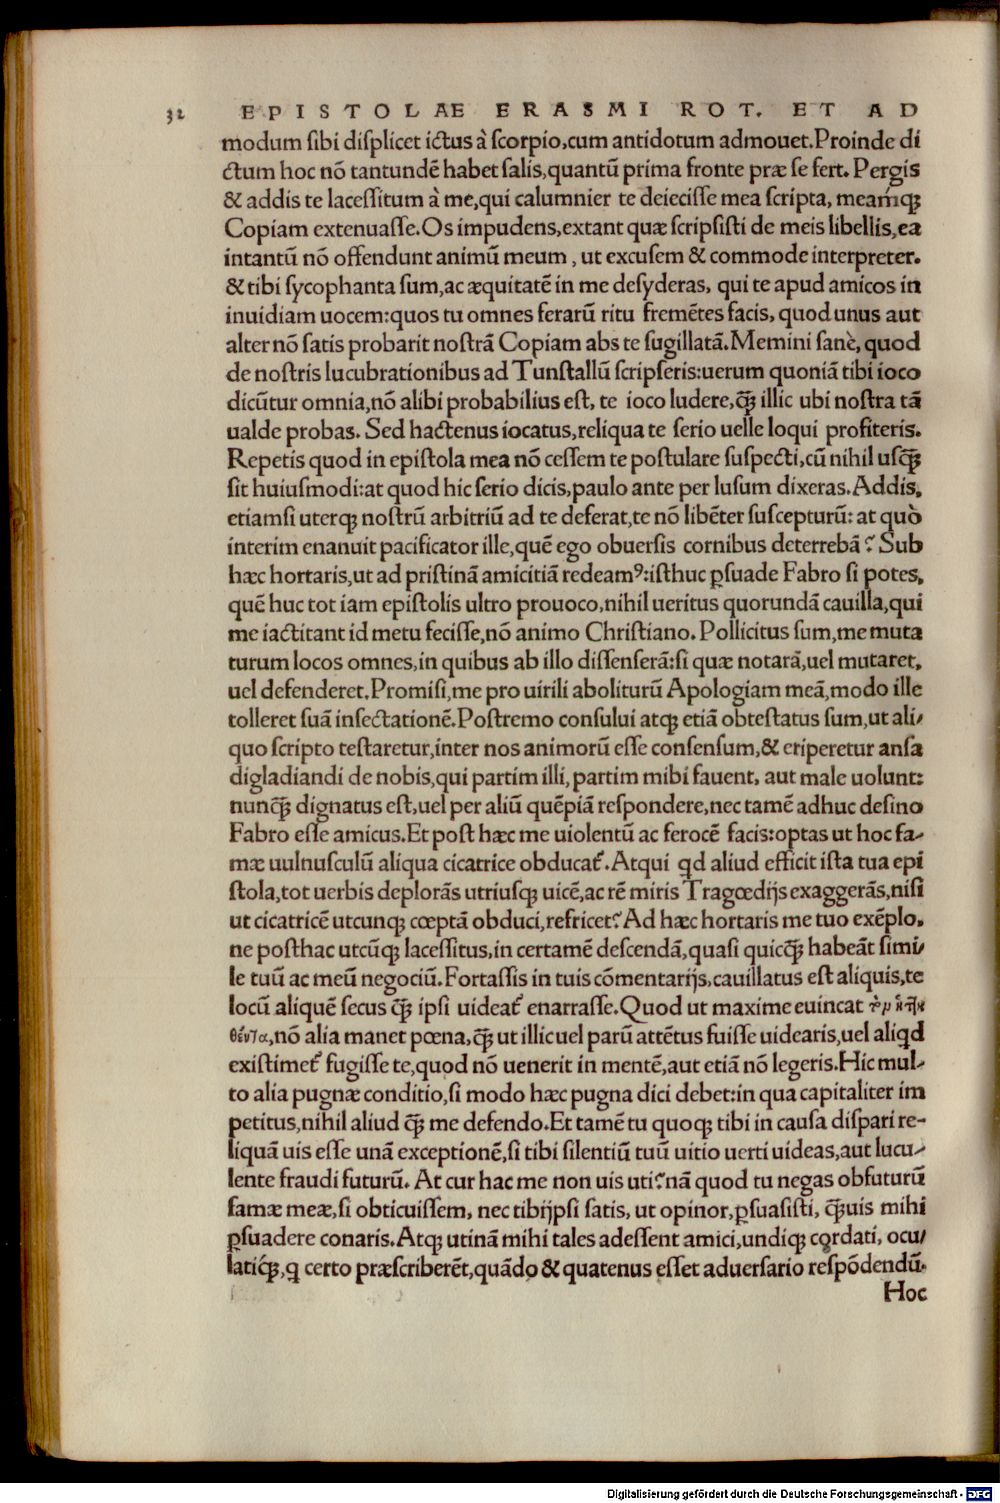 32 EPISTOLAE ERASMI ROT. ET AD
modum sibi displicet ictus à scorpio,cum antidotum admouet.Proinde di
ctum hoc nō tantundē habet salis,quantū prima fronte præ se fert. Pergis
& addis te lacessitum à me,qui calumnier te deiecisse mea scripta, meamq́ꝫ
Copiam extenuasse.Os impudens,extant quæ scripsisti de meis libellis,ea
intantū nō offendunt animū meum , ut excusem & commode interpreter.
& tibi sycophanta sum,ac æquitatē in me desyderas, qui te apud amicos in
inuidiam uocem:quos tu omnes ferarū ritu fremētes facis, quod unus aut
alter nō satis probarit nostrā Copiam abs te sugillatā.Memini sanè, quod
de nostris lucubrationibus ad Tunstallū scripseris:uerum quoniā tibi ioco
dicūtur omnia,nō alibi probabilius est, te ioco ludere,q̄ꝫ illic ubi nostra tā
ualde probas. Sed hactenus iocatus,reliqua te serio uelle loqui profiteris.
Repetis quod in epistola mea nō cessem te postulare suspecti,cū nihil usq̄ꝫ
sit huiusmodi:at quod hic serio dicis,paulo ante per lusum dixeras.Addis,
etiamsi uterqꝫ nostrū arbitriū ad te deferat,te nō libēter suscepturū: at quò
interim enanuit pacificator ille,quē ego obuersis cornibus deterrebā? Sub
hæc hortaris,ut ad pristinā amicitiā redeamꝰ:isthuc ꝑsuade Fabro si potes,
quē huc tot iam epistolis ultro prouoco,nihil ueritus quorundā cauilla,qui
me iactitant id metu fecisse,nō animo Christiano. Pollicitus sum,me muta
turum locos omnes,in quibus ab illo dissenserā:si quæ notarā,uel mutaret,
uel defenderet.Promisi,me pro uirili aboliturū Apologiam meā,modo ille
tolleret suā insectationē.Postremo consului atqꝫ etiā obtestatus sum,ut ali⸗
quo scripto testaretur,inter nos animorū esse consensum,& eriperetur ansa
digladiandi de nobis,qui partim illi, partim mihi fauent, aut male uolunt:
nunq̄ꝫ dignatus est,uel per aliū quēpiā respondere,nec tamē adhuc desino
Fabro esse amicus.Et post hæc me uiolentū ac ferocē facis:optas ut hoc fa⸗
mæ uulnusculū aliqua cicatrice obducat᷑. Atqui qd aliud efficit ista tua epi
stola,tot uerbis deplorās utriusqꝫ uicē,ac rē miris Tragœdijs exaggerās,nisi
ut cicatricē utcunqꝫ cœptā obduci,refricet? Ad hæc hortaris me tuo exēplo,
ne posthac utcūqꝫ lacessitus,in certamē descendā,quasi quicq̄ꝫ habeāt simi⸗
le tuū ac meū negociū.Fortassis in tuis cōmentarijs,cauillatus est aliquis,te
locū aliquē secus q̄ꝫ ipsi uideat᷑ enarrasse.Quod ut maxime euincat
nō alia manet pœna,q̄ꝫ ut illic uel parū attētus fuisse uidearis,uel aliqd
existimet᷑ fugisse te,quod nō uenerit in mentē,aut etiā nō legeris.Hic mul⸗
to alia pugnæ conditio,si modo hæc pugna dici debet:in qua capitaliter im
petitus,nihil aliud q̄ꝫ me defendo.Et tamē tu quoqꝫ tibi in causa dispari re-
liquā uis esse unā exceptionē,si tibi silentiū tuū uitio uerti uideas,aut lucu⸗
lente fraudi futurū. At cur hac me non uis uti?nā quod tu negas obfuturū
famæ meæ,si obticuissem, nec tibijpsi satis, ut opinor,ꝑsuasisti, q̄ꝫuis mihi
ꝑsuadere conaris.Atqꝫ utinā mihi tales adessent amici,undiqꝫ cordati, ocu⸗
latiq́ꝫ,q certo præscriberēt,quādo & quatenus esset aduersario respōdendū.
Hoc
Digitalisierung gefördert durch die Deutsche Forschungsgemeinschaft - DFG